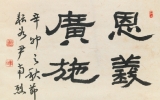 恩義
廣施
辛卯之秋節
尹